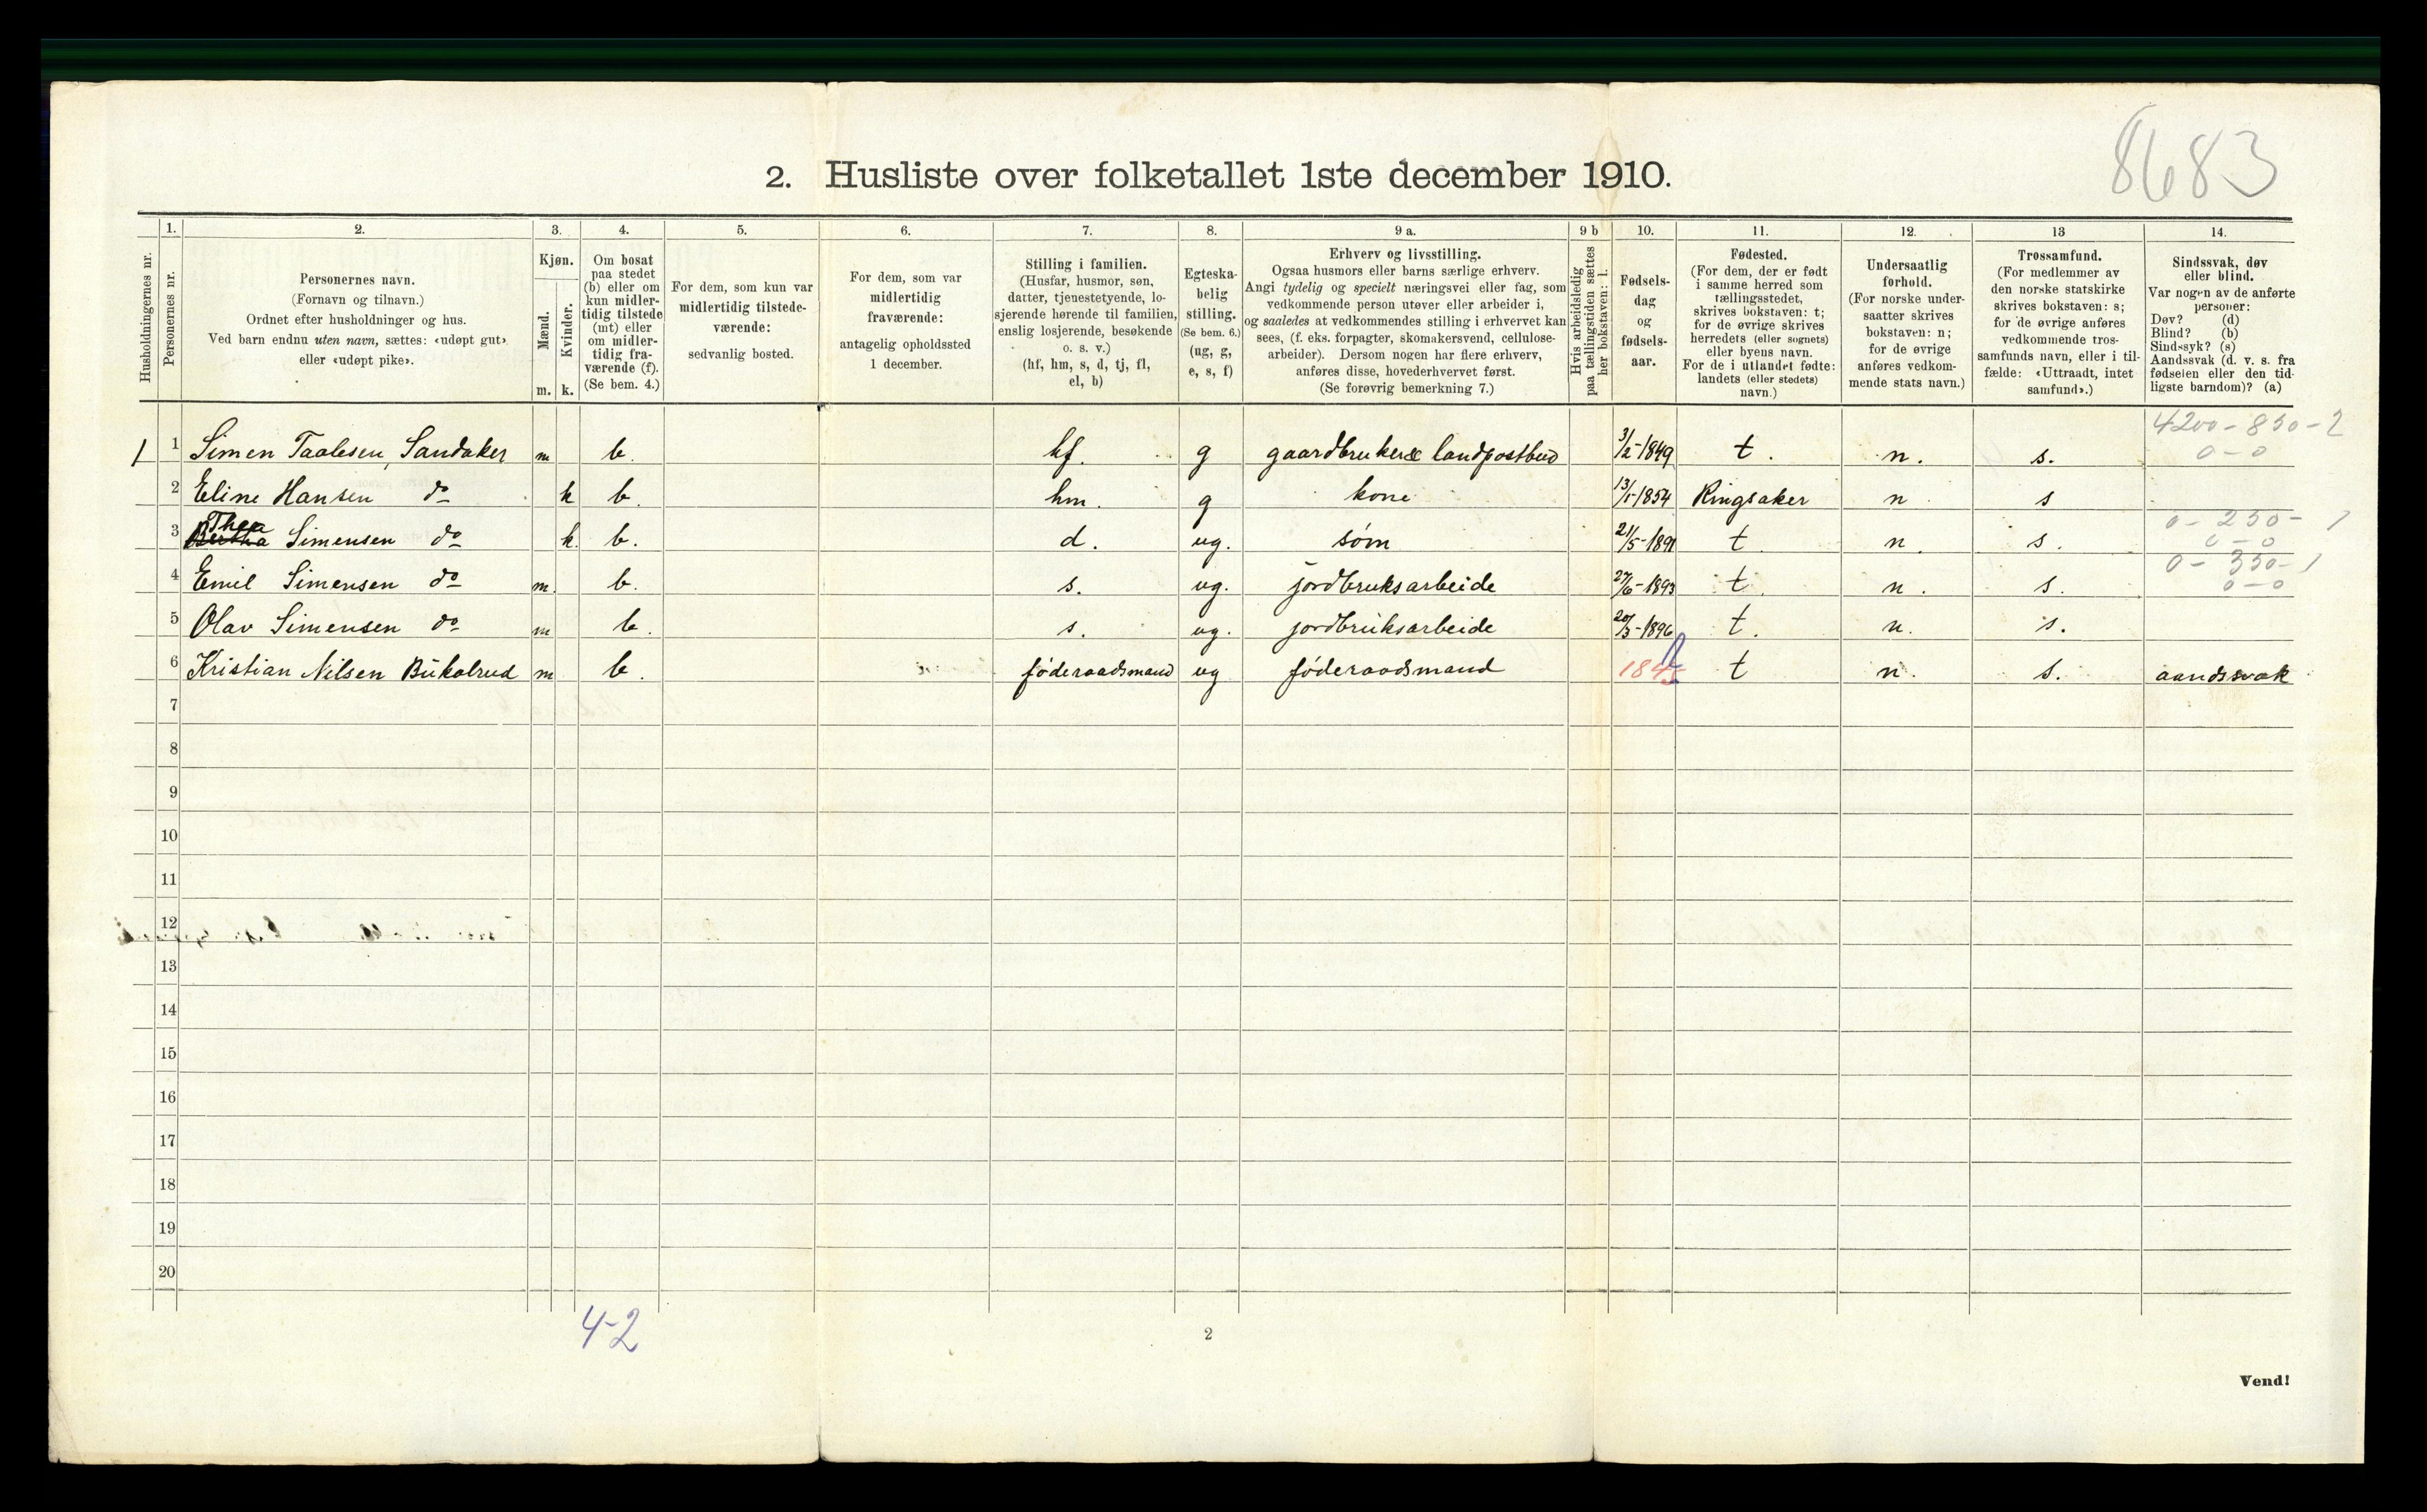 8683
2. Husliste over folketallet 1ste december 1910.
Husholdningernes nr.
1.
Personernes nr.
2.
Personernes navn.
(Fornavn og tilnavn.)
Ordnet efter husholdninger og hus.
Ved barn endnu uten navn, sættes: «udøpt gut»
eller «udøpt pike».
3.
Kjøn.
Mænd.
Kvinder.
m. k.
4.
Om bosat
paa stedet
(b) eller om
kun midler-
tidig tilstede
(mt) eller
om midler-
tidig fra-
værende (f).
(Se bem. 4.)
5.
For dem, som kun var
midlertidig tilstede-
værende:
sedvanlig bosted.
6.
For dem, som var
midlertidig
fraværende:
antagelig opholdssted
1 december.
7.
Stilling i familien.
(Husfar, husmor, søn,
datter, tjenestetyende, lo-
sjerende hørende til familien,
enslig losjerende, besøkende
o. s. v.)
(hf, hm, s, d, tj, fl,
el, b)
8.
Egteska-
belig
stilling.
(Se bem. 6.)
(ug, g,
e, s, f)
9 a.
Erhverv og livsstilling.
Ogsaa husmors eller barns særlige erhverv.
Angi tydelig og specielt næringsvei eller fag, som
vedkommende person utøver eller arbeider i,
og saaledes at vedkommendes stilling i erhvervet kan
sees, (f. eks. forpagter, skomakersvend, cellulose-
arbeider). Dersom nogen har flere erhverv,
anføres disse, hovederhvervet først.
(Se forøvrig bemerkning 7.)
9 b
Hvis arbeidsledig
paa tællingstiden sættes
her bokstaven: l.
10.
Fødsels-
dag
og
fødsels-
aar.
11.
Fødested.
(For dem, der er født
i samme herred som
tællingsstedet,
skrives bokstaven: t;
for de øvrige skrives
herredets (eller sognets)
eller byens navn.
For de i utlandet fødte:
landets (eller stedets)
navn.)
12.
Undersaatlig
forhold.
(For norske under-
saatter skrives
bokstaven: n;
for de øvrige
anføres vedkom-
mende stats navn.)
13
Trossamfund.
(For medlemmer av
den norske statskirke
skrives bokstaven: s;
for de øvrige anføres
vedkommende tros-
samfunds navn, eller i til-
fælde: «Uttraadt, intet
samfund».)
14.
Sindssvak, døv
eller blind.
Var nogen av de anførte
personer:
Døv? (d)
Blind? (b)
Sindssyk? (s)
Aandssvak (d. v. s. fra
fødselen eller den tid-
ligste barndom)? (a)
4200-850-2
0-0
1 1 Simen Taalesen, Sandaker m b. hf. g gaardbruker & landpostbud 3/2-1849 t. n. s.
2 Eline Hansen do k b. hm. g kone 13/1-1854 Ringsaker n s
0-250-1
0-0
Thea
3 Bertha Simensen do k. b. d. ug. søm 21/5-1891 t n. s.
0-350-1
0-0
4 Emil Simensen do m. b. s. ug. jordbruksarbeide 27/6-1893 t. n. s.
5 Olav Simensen do m b. s. ug. jordbruksarbeide 20/3-1896 t. n. s.
6 Kristian Nilsen Bukolrud m b. føderaadsmand ug føderaadsmand 1845 t n. s. aandssvak
7
8
9
10
11
12
13
14
15
16
17
18
19
20
4-2
2
Vend!